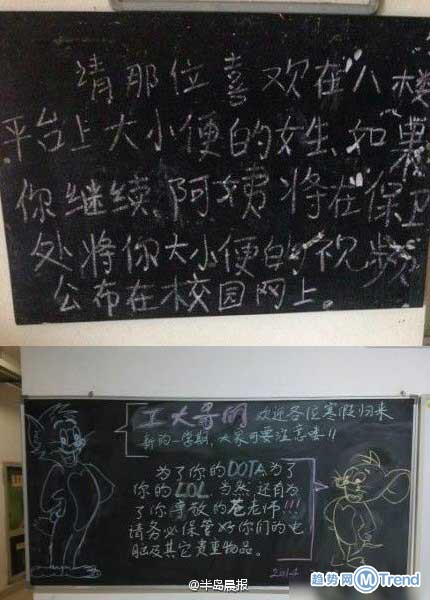 请那位喜欢在八楼
平台上大小便的女生,如果
你继续,阿姨将在保卫
处将你大小便的视频
公布在校园网上
工大哥的 欢迎各位寒假归来
新的一学期,大家可要注意喽!!
为了你的DOTA,为了
你的LOL,当然,还有为
了你尊敬的苍老师!!!
请务必保管好你们的电
脑及其它贵重物品。
2014
@半岛晨报
趋势网 MTrend